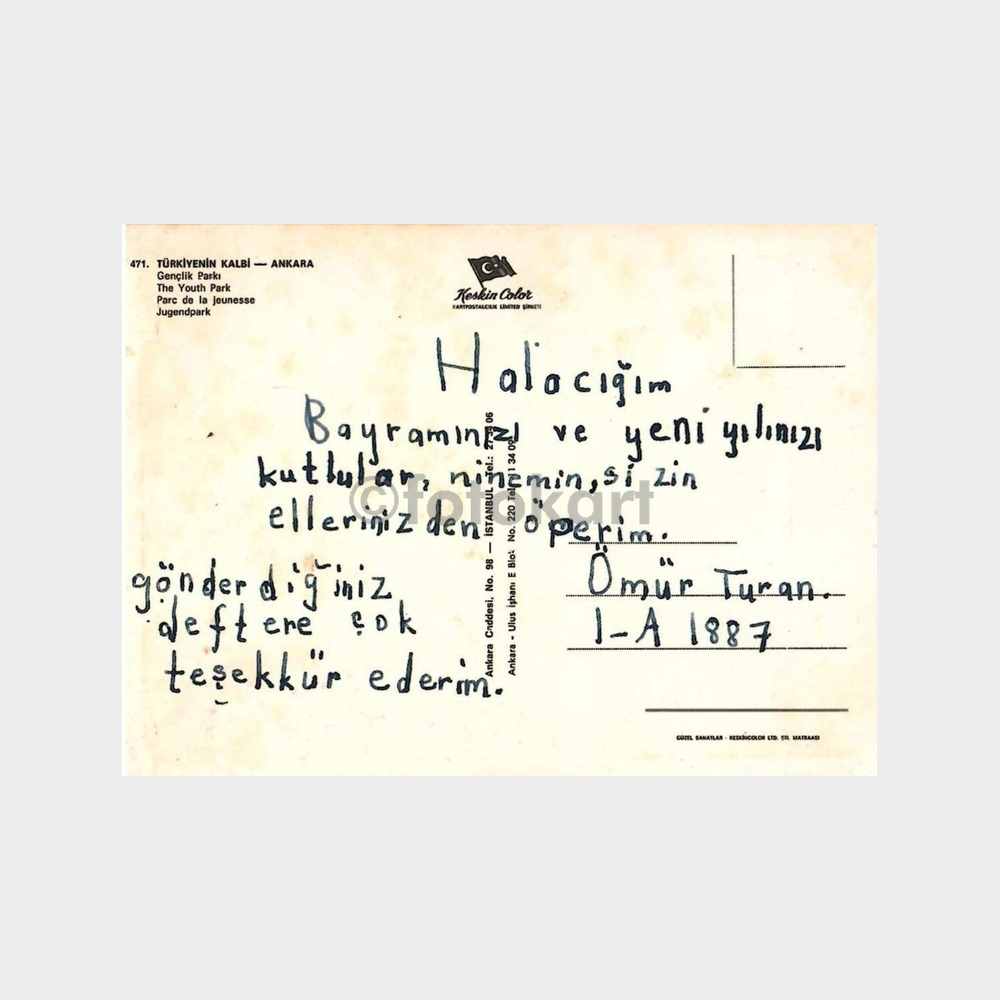 471. TÜRKİYENİN KALBİ — ANKARA
Gençlik Parkı
The Youth Park
Parc de la jeunesse
Jugendpark
Keskin Color
KARTPOSTALCILIK LİMİTED ŞİRKETİ
Halacığım
Bayramınızı ve yeni yılınızı
kutlular, ninemin, sizin
ellerinizden öperim.
Ömür Turan.
1-A 1887
gönderdiğiniz
deftere çok
teşekkür ederim.
Ankara Caddesi, No. 98 — İSTANBUL Tel.: 27 06
Ankara - Ulus İşhanı E Blok No. 220 Tel 1 34 09
©fotokart
GÜZEL SANATLAR - KESKİNCOLOR LTD. ŞTİ. MATBAASI